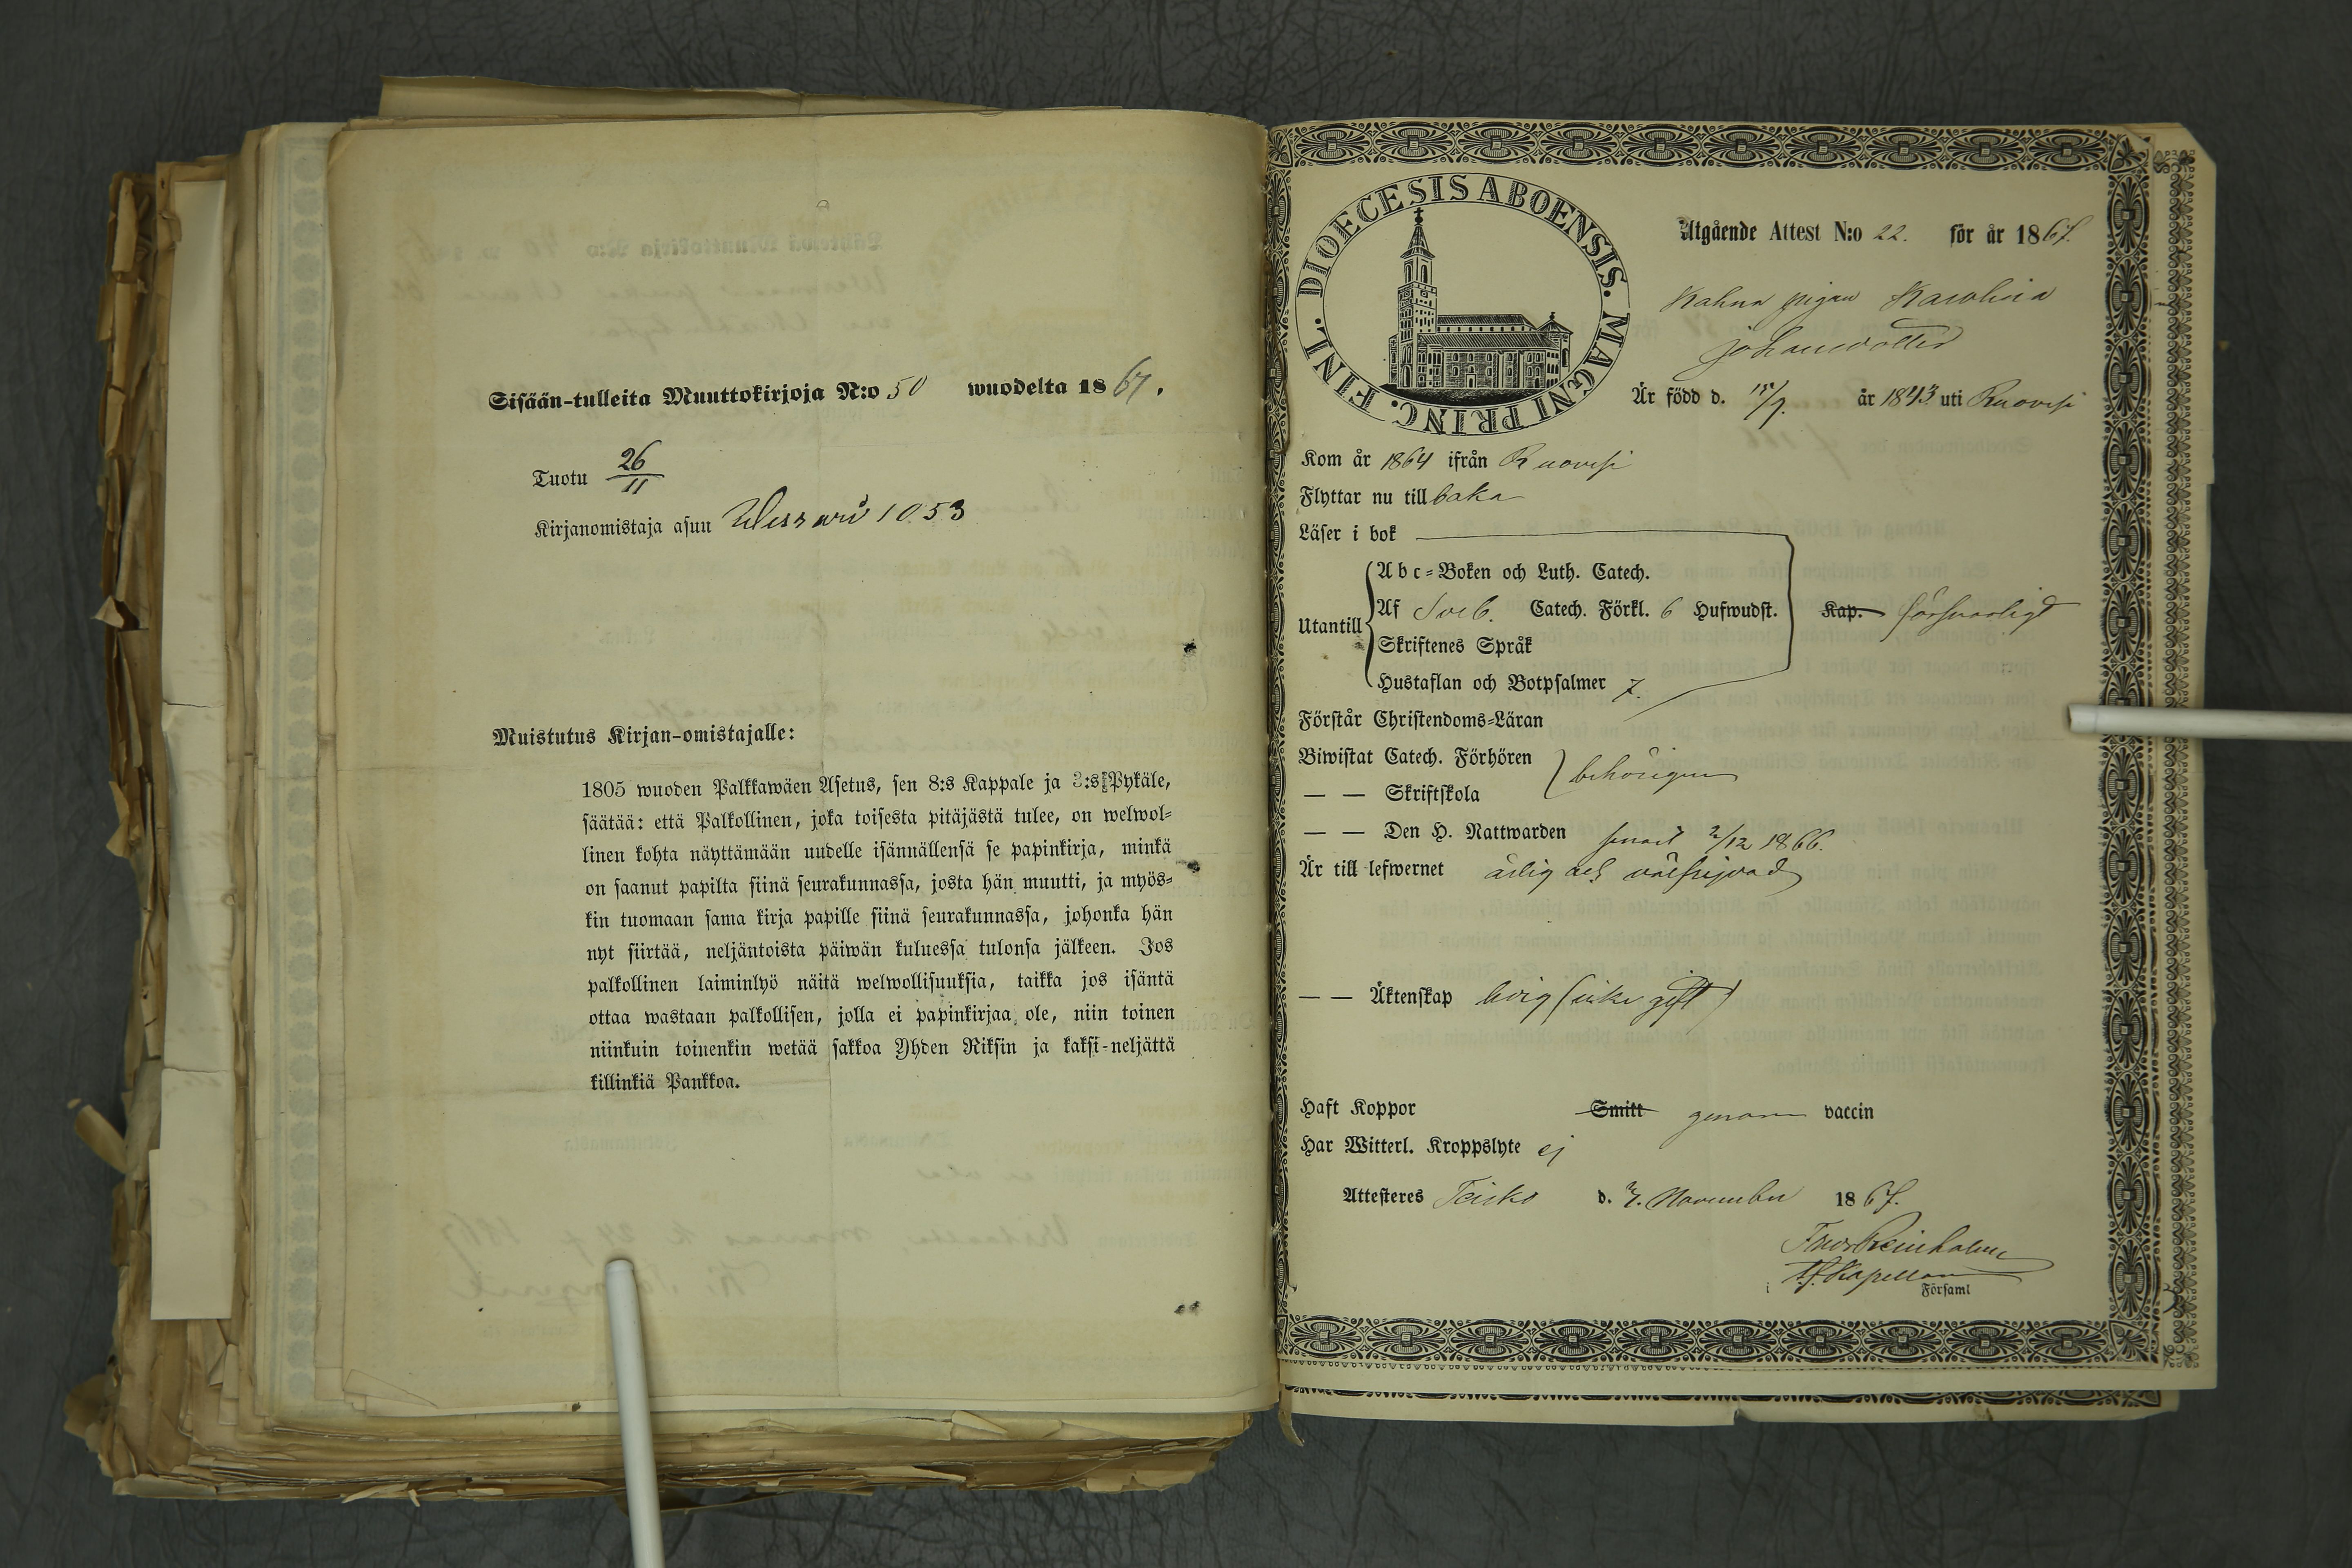 Sisään-tulleita Muuttokirjoja N:o 50 wuodelta 1867.
Tuotu 26/11
Kirjanomistaja asuu 1053
Muistutus Kirjan-omistajalle:
1805 wuoden Palkkawäen Asetus, sen 8:s Kappale ja 3:s Pykäle,
säätää: että Palkollinen, joka toisesta pitäjästä tulee, on welwol-
linen kohta näyttämään uudelle isännällensä se papinkirja, minkä
on saanut papilta siinä seurakunnassa, josta hän muutti, ja myös-
kin tuomaan sama kirja papille siinä seurakunnassa, johonka hän
nyt siirtää, neljäntoista päiwän kuluessa tulonsa jälkeen. Jos
palkollinen laiminlyö näitä welwollisuuksia, taikka jos isäntä
ottaa wastaan palkollisen, jolla ei papinkirjaa ole, niin toinen
niinkuin toinenkin wetää sakkoa Yhden Riksin ja kaksi-neljättä
killinkiä Pankkoa.
DIOECESIS ABOENSIS. MAGNI PRINC. FINL.
Utgående Attest N:o 22. för år 1867.
pigan Karolina
Johansdotter
Är född d. 15/9. år 1843 uti Ruovesi
Kom år 1864 ifrån Ruovesi
Flyttar nu till baka
Läser i bok
Utantill
Abc-Boken och Luth. Catech.
Af Sveb. Catech. Förkl. 6 Hufwudst. Kap. försvarligt
Skriftenes Språk
Hustaflan och Botpsalmer 7.
Förstår Christendoms-Läran
Biwistat Catech. Förhören behörigen
— — Skriftskola
— — Den H. Nattwarden senast 2/12 1866.
Är till lefwernet ärlig och välfrejdad
— — Äktenskap ledig (icke gift)
Haft Koppor Smitt genom vaccin
Har Witterl. Kroppslyte ej
Attesteres Teisko d. November 1867.
Reinholm
Kapellan
i Församl